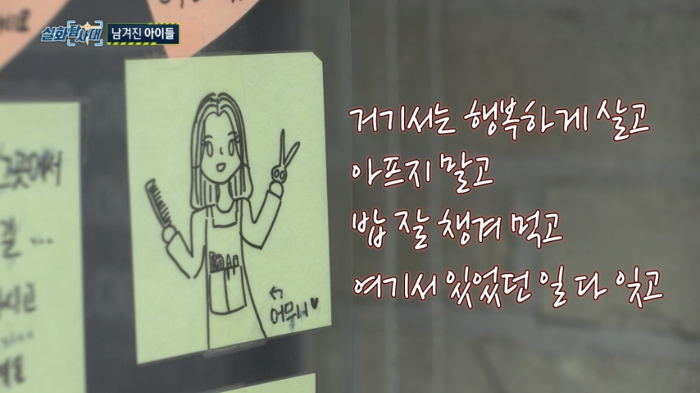 실화탐사대 남겨진 아이들
거기서는 행복하게 살고
아프지 말고
밥 잘 챙겨 먹고
여기서 있었던 일 다 잊고
그곳에서
어무니♥